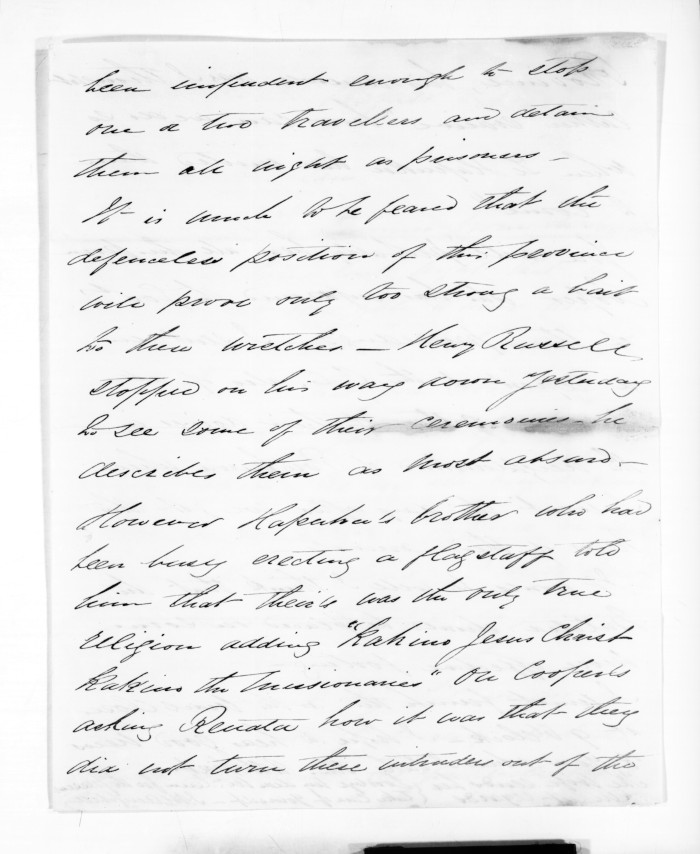 been impudent enough to stop
one or two travellers and detain
them all night as prisoners -
It is much to be feared that the
defenceless position of this province
will prove only too strong a bait
to these wretches - Henry Russell
stopped on his way down yesterday
to see some of their ceremonies - he
describes them as most absurd -
However Kapuka's brother who had
been busy erecting a flagstaff told
him that theirs was the only true
religion adding "Kakino Jesus Christ
Kakino the Missionaries" On Cooper's
asking Renata how it was that they
did not turn these intruders out of the